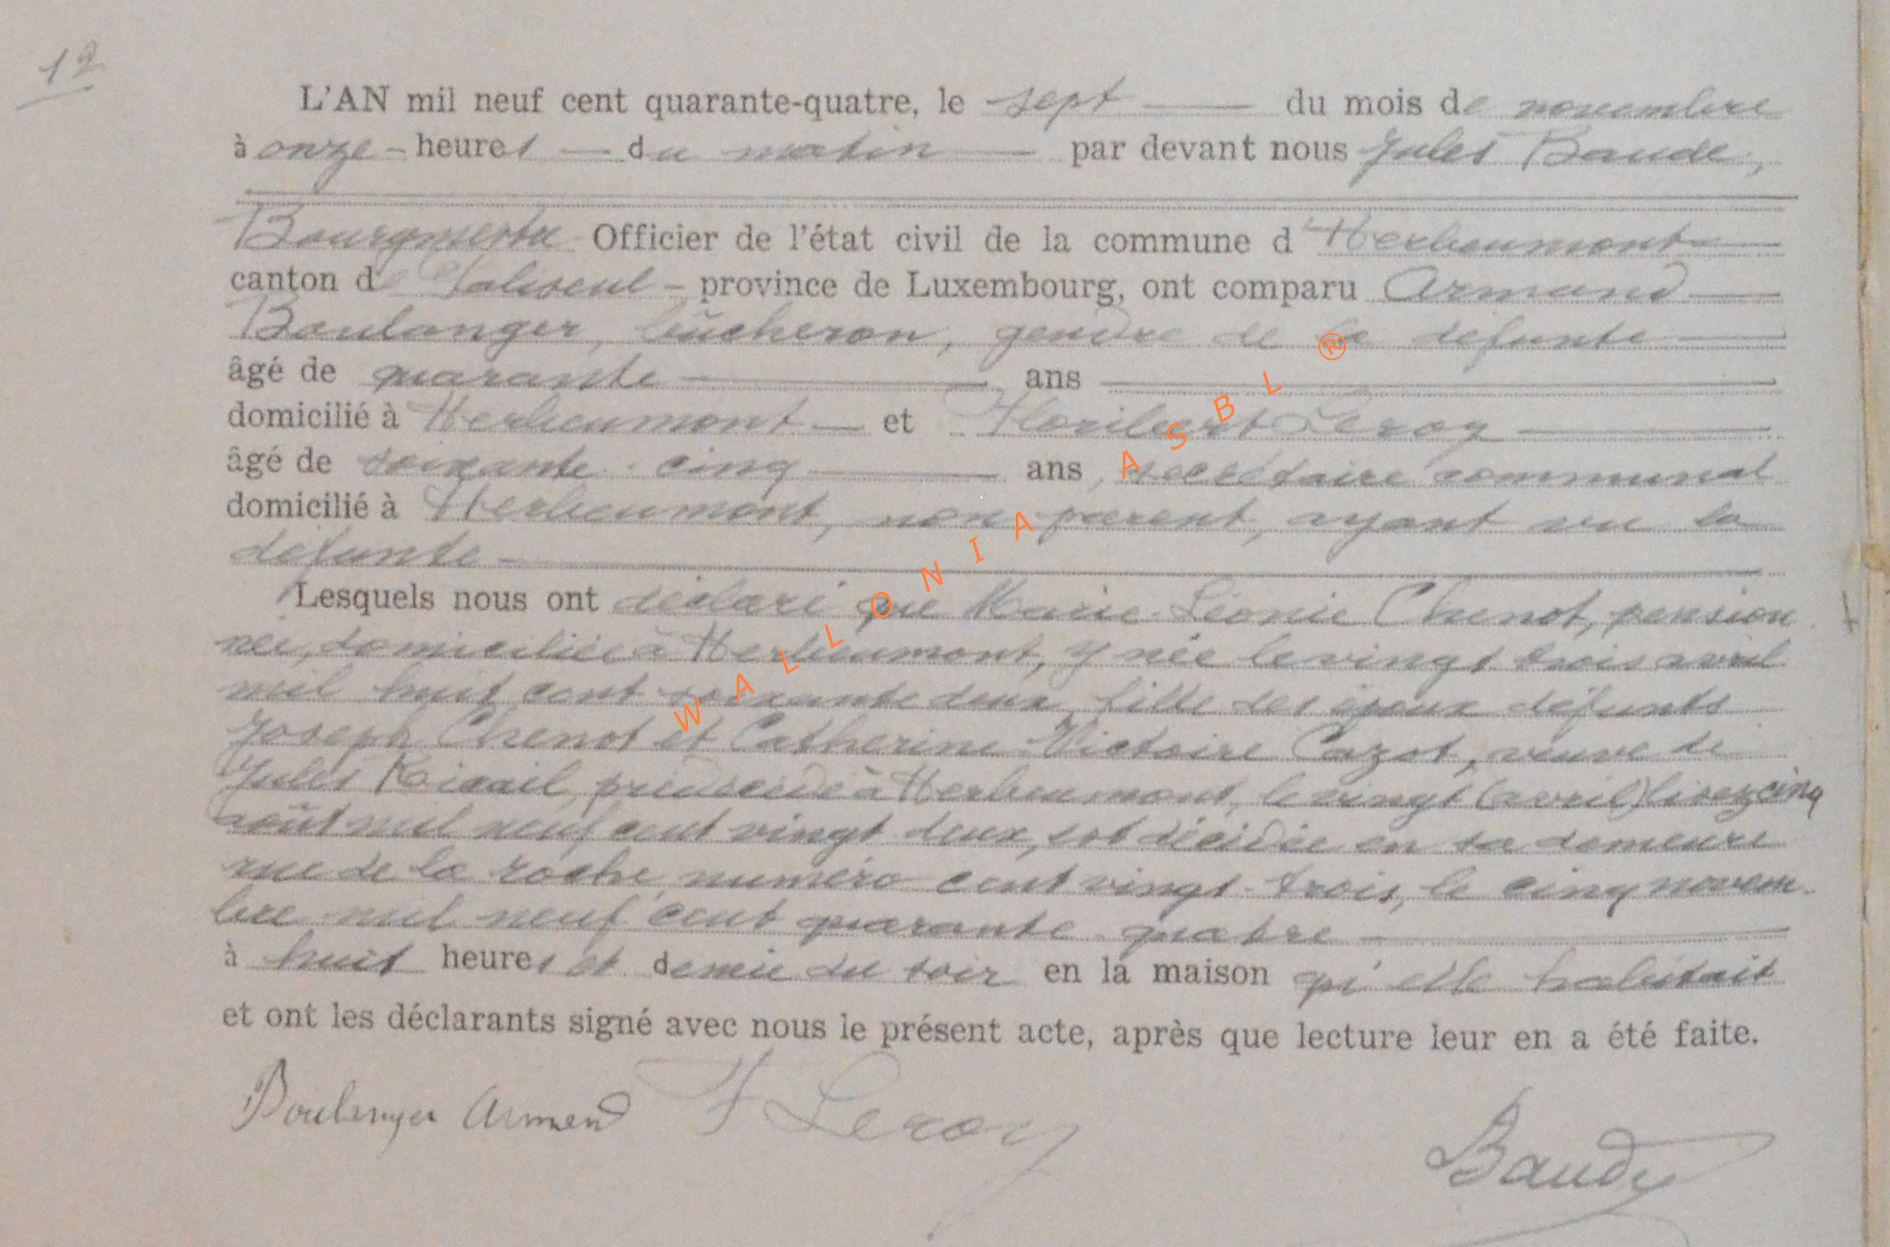 12
L'AN mil neuf cent quarante-quatre, le sept du mois de novembre
à onze heures du matin par devant nous Jules Baude,
Bourgmestre Officier de l'état civil de la commune d'Herbeumont
canton de Paliseul province de Luxembourg, ont comparu Armand
Boulanger, bûcheron, gendre de la défunte
âgé de quarante ans
domicilié à Herbeumont et Floribert Leroy
âgé de soixante-cinq ans, secrétaire communal
domicilié à Herbeumont, non parent, ayant vu la
défunte
Lesquels nous ont déclaré que Marie-Léonie Chenot, pension
née, domiciliée à Herbeumont, y née le vingt trois avril
mil huit cent soixante deux, fille des époux défunts
Joseph Chenot et Catherine Victoire Cazot, veuve de
Jules prédécédé à Herbeumont, le vingt (avril) lisez cinq
août mil neuf cent vingt deux, est décédée en sa demeure
rue de la roche numéro cent vingt-trois, le cinq novem-
bre mil neuf cent quarante-quatre
à huit heures et demie du soir en la maison qu'elle habitait
et ont les déclarants signé avec nous le présent acte, après que lecture leur en a été faite.
Boulanger Armand F Leroy
WALLONIA ASBL ®